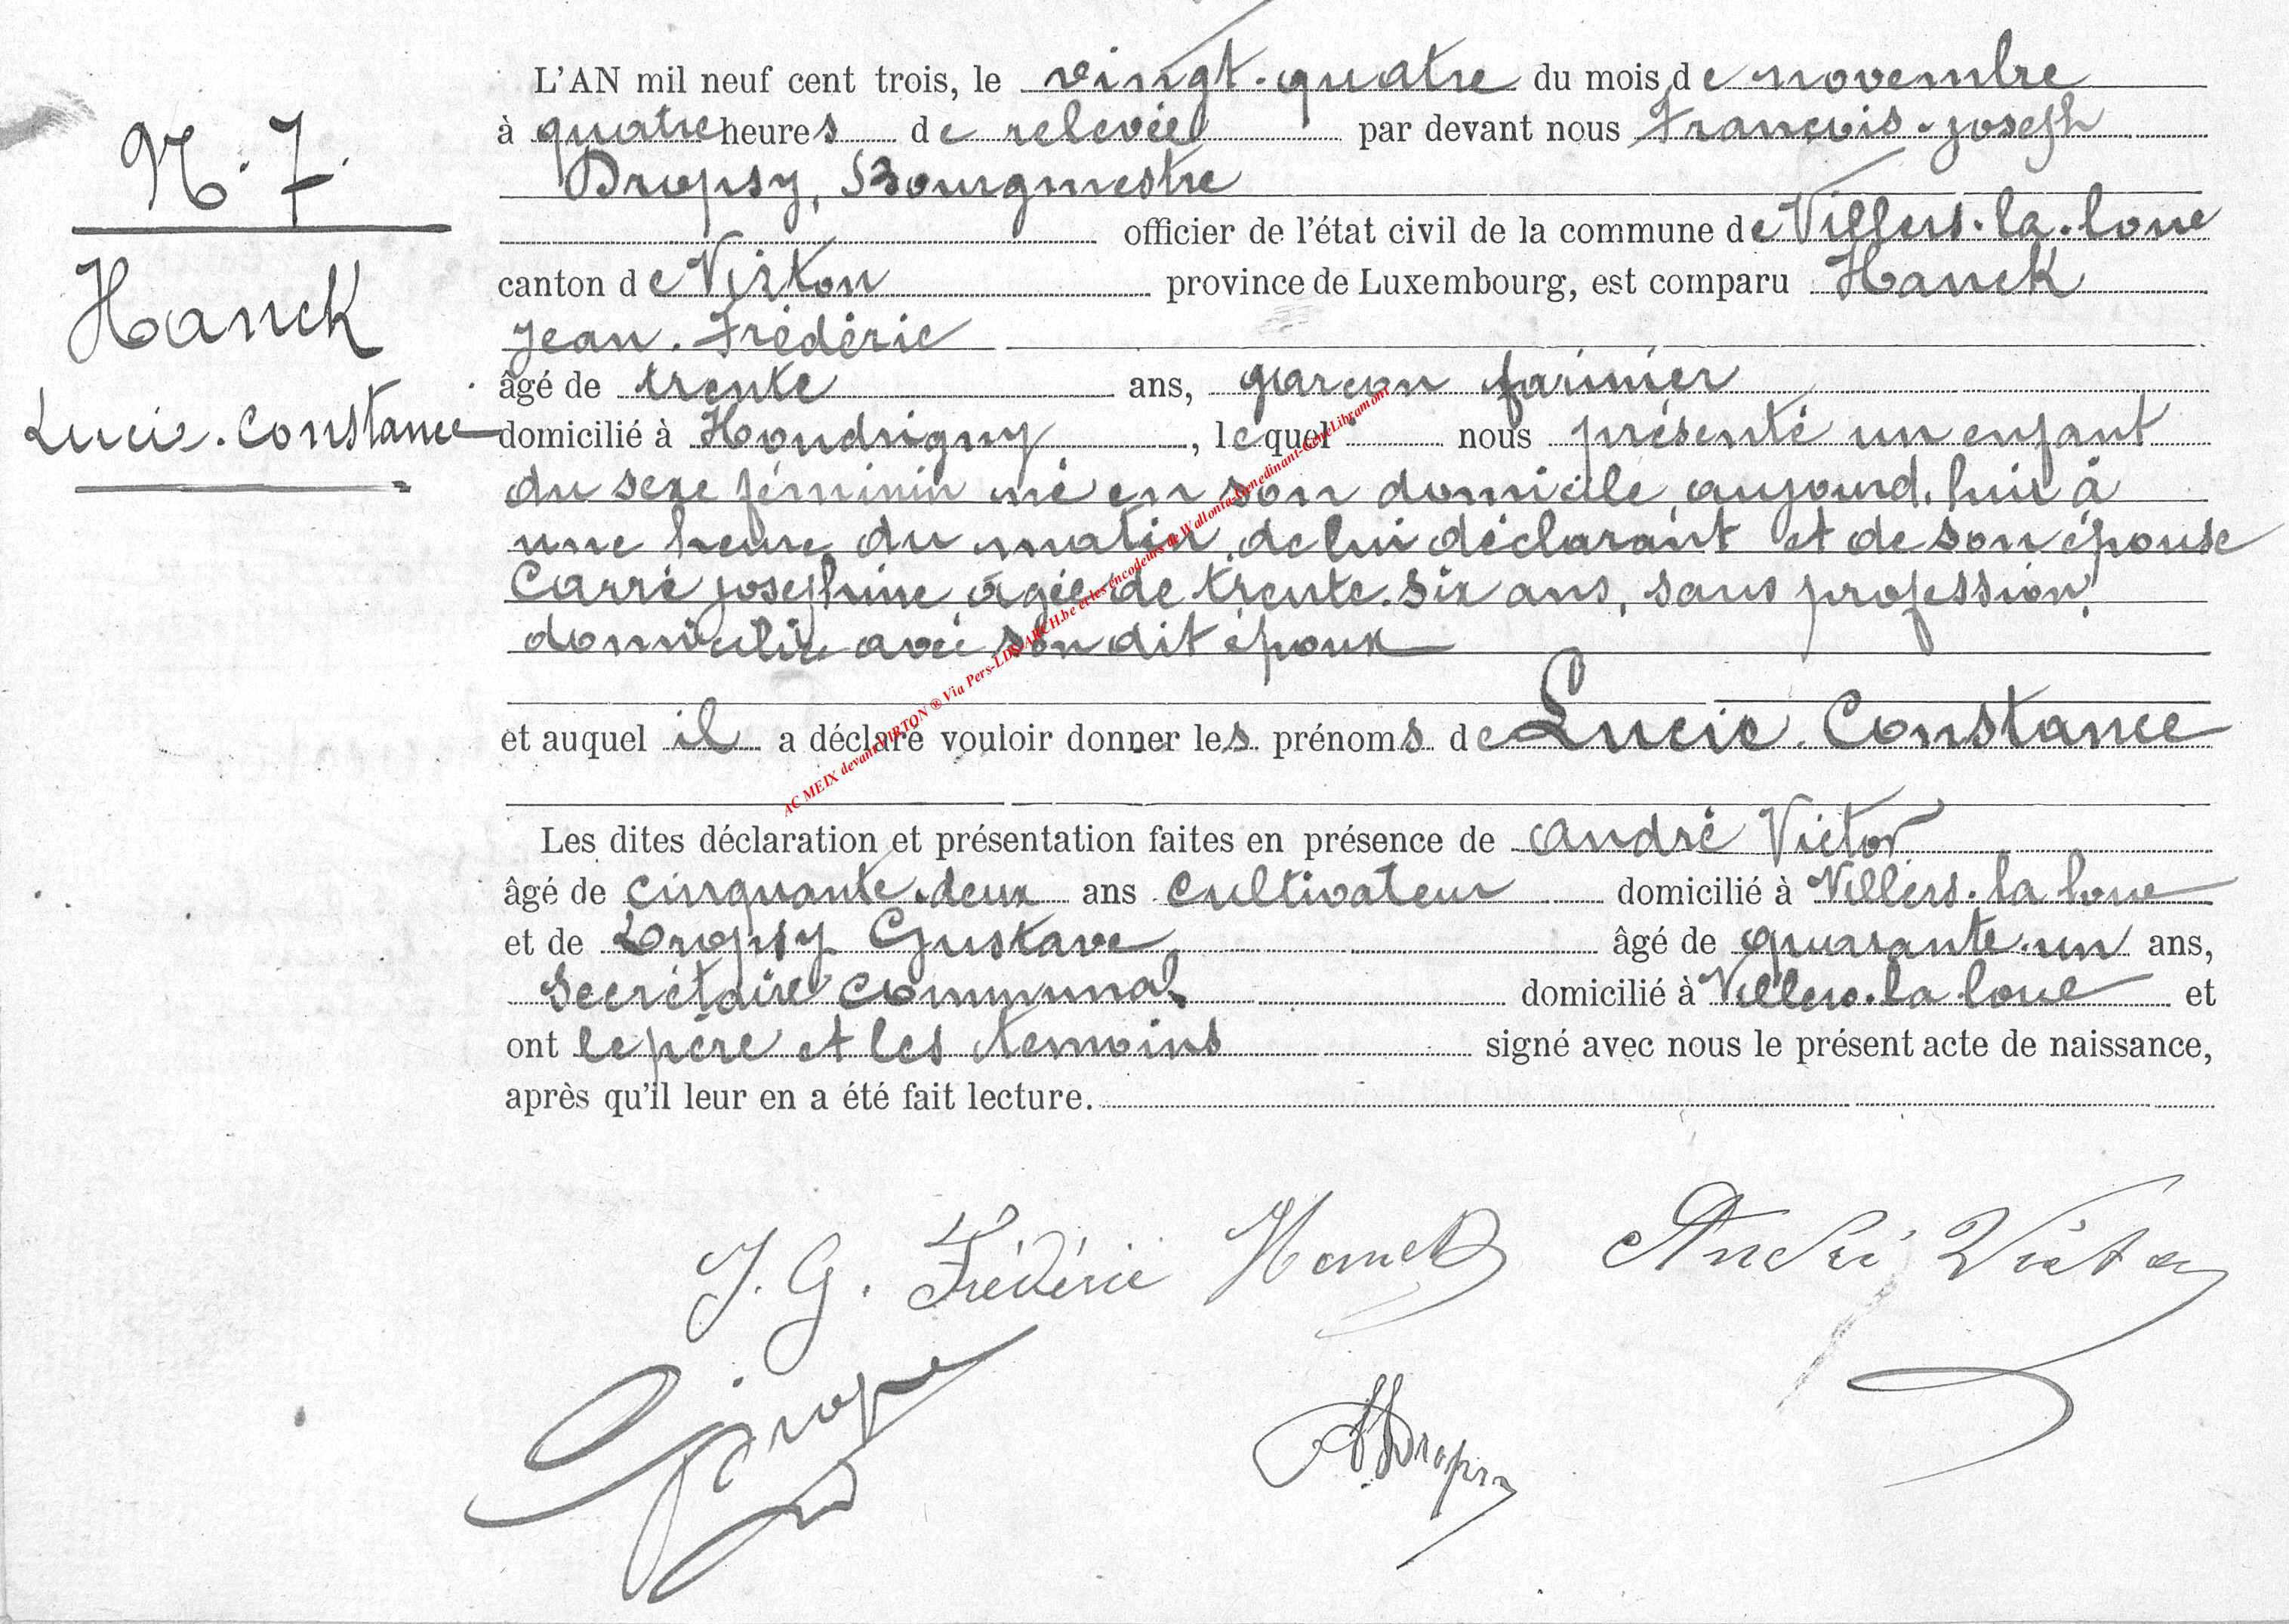 N. 7.
Hanck
Lucie. Constance
L'AN mil neuf cent trois, le vingt-quatre du mois de novembre
à quatre heures de relevée par devant nous François-joseph
Dropsy, Bourgmestre
officier de l'état civil de la commune de Villers-la-loue
canton de Virton province de Luxembourg, est comparu Hanck
Jean-Frédéric
âgé de trente ans, garçon farinier
domicilié à Houdrigny, lequel nous présenté un enfant
du sexe féminin né en son domicile, aujourd'hui à
une heure du matin, de lui déclarant et de son épouse
Carré joséphine âgée de trente-six ans, sans profession,
domicilie avec son dit époux
et auquel il a déclaré vouloir donner les prénoms de Lucie. Constance
Les dites déclaration et présentation faites en présence de André Victor
âgé de cinquante-deux ans cultivateur domicilié à Villers-la loue
et de Dropsy Gustave âgé de quarante-un ans,
secrétaire communal domicilié à Villers-la loue et
ont le père et les temoins signé avec nous le présent acte de naissance,
après qu'il leur en a été fait lecture.
J. G. Frédéric Hanck André Victor
G. Dropsy Dropsy
AC MEIX devant VIRTON ® Via Pers-LDS ARCH.be et les encodeurs de Wallonia-Genedinant-GeneLibramont